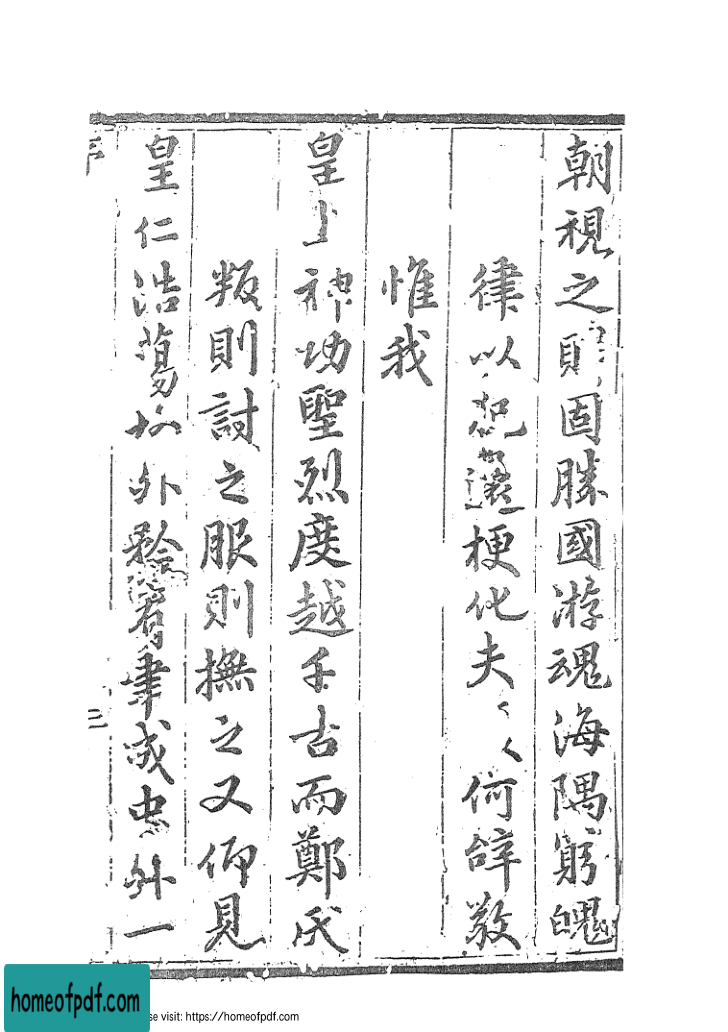 朝視之則固勝國游魂海隅躬愧
律以祝還梗化夫〻何辞敬
惟我
皇上神功聖烈度越千古而鄭氏
叛則討之服則撫之又仰見
皇仁浩蕩外矜肇成忠外一
序
三
homeofpdf.com
se visit: https://homeofpdf.com